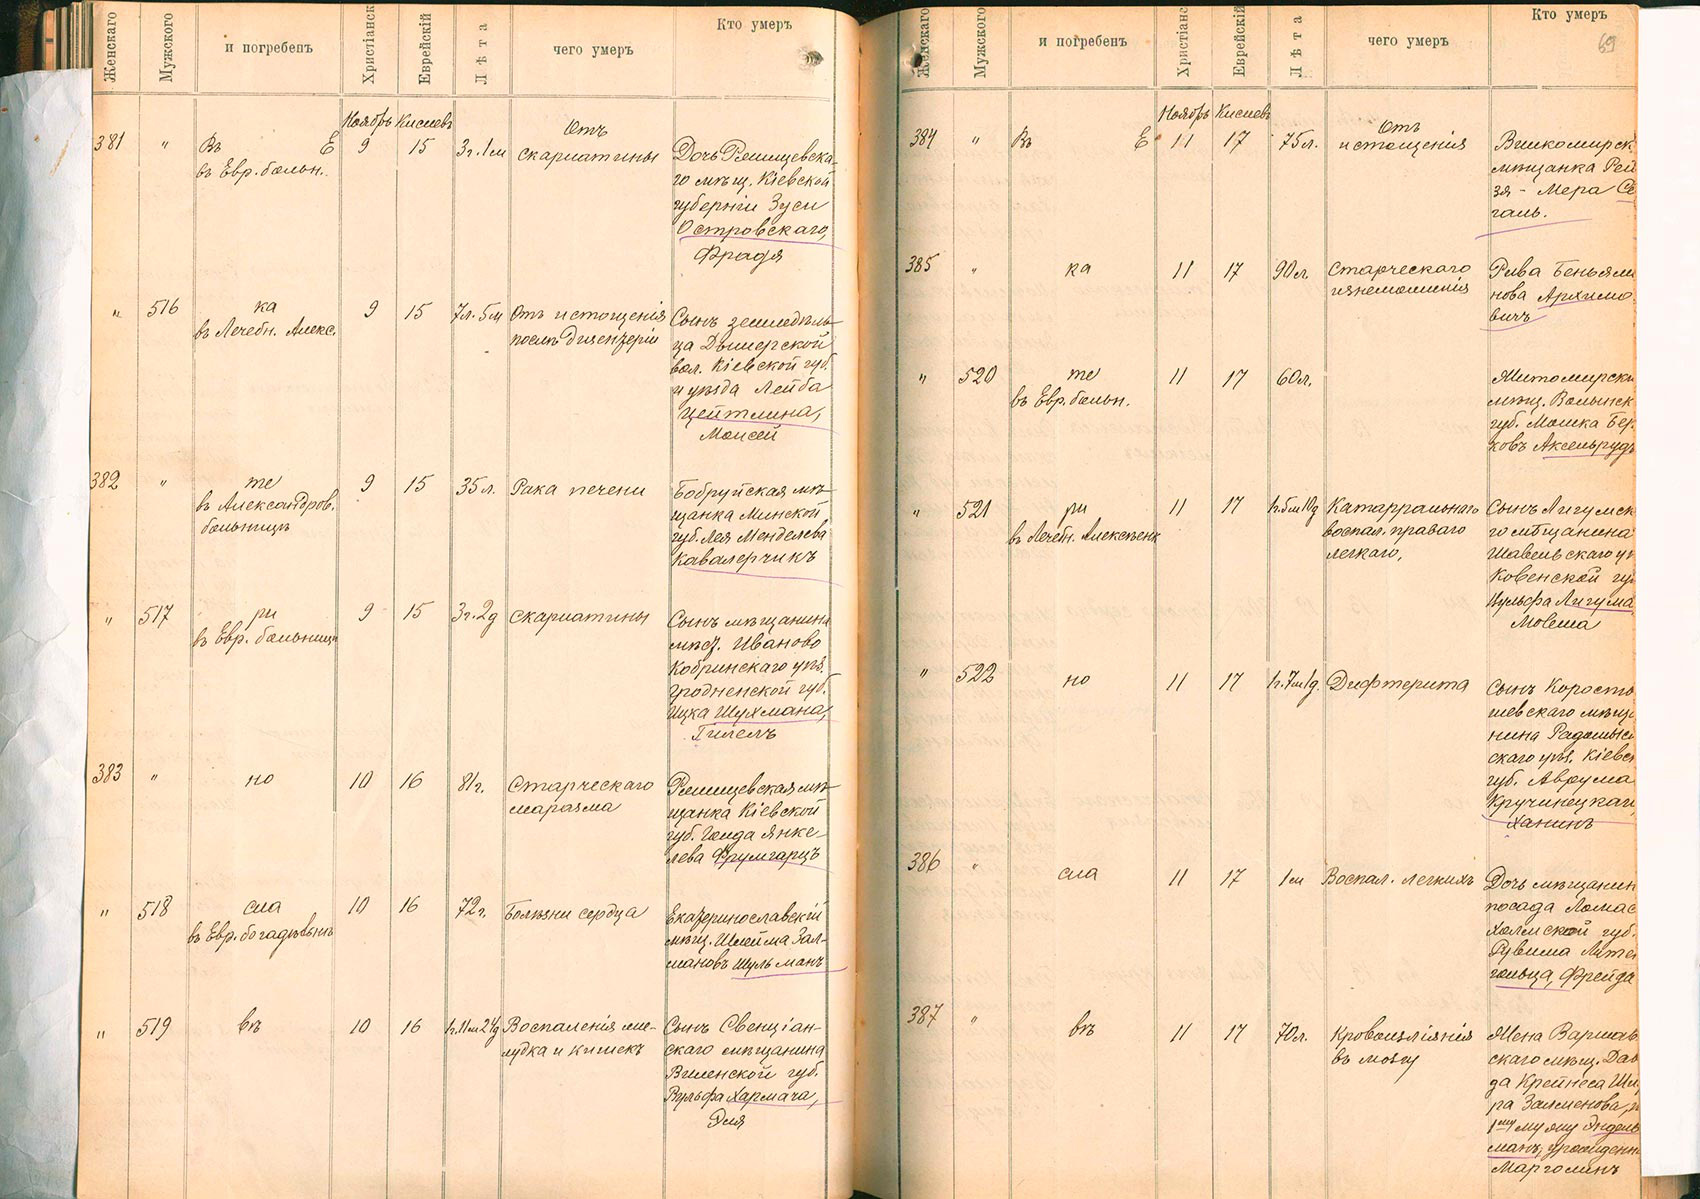 Женскаго
Мужского
и погребенъ
Христіанск
Еврейскій
Лѣта
чего умеръ
Кто умеръ
Ноябрь Кислевъ
381 " Въ Е 9 15 3г.1м
въ Евр. больн.
Отъ
скарлатины
Дочь Ржищевска-
го мѣщ. Кіевской
губерніи Зуси
Островскаго,
Фрадя
" 516 ка 9 15 7л.5м
въ Лечебн. Алекс.
Отъ истощенія
послѣ дизентеріи
Сынъ земледѣль-
ца Дымерской
вол. Кіевской губ.
и уѣзда Лейба
Цейтлина,
Моисей
382 " те 9 15 35л. Рака печени
въ Александров.
больницѣ
Бобруйская мѣ-
щанка Минской
губ. Лея Менделева
Кавалерчикъ
" 517 ри 9 15 3г.2д Скарлатины
въ Евр. больницѣ
Сынъ мѣщанина
мѣст. Иваново
Кобринскаго уѣз.
Гродненской губ.
Ицка Шухмана,
Гилелъ
383 " но 10 16 81г. Старческаго
маразма
Ржищевская мѣ-
щанка Кіевской
губ. Голда Янке-
лева Фрумгарцъ
" 518 сла 10 16 72г. Болѣзни сердца
въ Евр. богадѣльнѣ
Екатеринославскій
мѣщ. Шлейма Зал-
мановъ Шульманъ
" 519 въ 10 16 1г.11м24д Воспаленія же-
лудка и кишекъ
Сынъ Свенціан-
скаго мѣщанина
Виленской губ.
Вульфа Хармача,
Эля
Женскаго
Мужского
и погребенъ
Христіанс
Еврейскій
Лѣта
чего умеръ
Кто умеръ
69
Ноябрь Кислевъ
384 " Въ Е 11 17 75л.
Отъ
истощенія
Вилкомирск
мѣщанка Рей
зя - Мера Се
галь.
385 " ка 11 17 90л. Старческаго
изнеможенія
Рива Беньями
нова Архимо-
вичъ
" 520 те 11 17 60л.
въ Евр. больн.
Житомирск
мѣщ. Волынск
губ. Мошка Бер-
ковъ Аксельрудъ
" 521 ри 11 17 1г.5м10д Катарральнаго
въ Лечебн. Алексѣевк
воспал. праваго
легкаго,
Сынъ Лигумск
го мѣщанина
Шавельскаго уѣ
Ковенской гу
Вульфа Лигума
Мовша
" 522 но 11 17 1г.7м1д. Дифтерита
Сынъ Коросты
шевскаго мѣща
нина Радомысл
скаго уѣз. Кіевск
губ. Аврума
Кручинецкаг
Ханинъ
386 " сла 11 17 1м Воспал. легкихъ
Дочь мѣщанин
посада Ломас
Холмской губ.
Рувима Люте
гольца, Фрейда
387 " въ 11 17 70л. Кровоизліянія
въ мозгу
Жена Варшав
скаго мѣщ. Дав
да Крейнеса Ши
ра Залменова, п
1му мужу Эндель
манъ, урожденн
Марголинъ